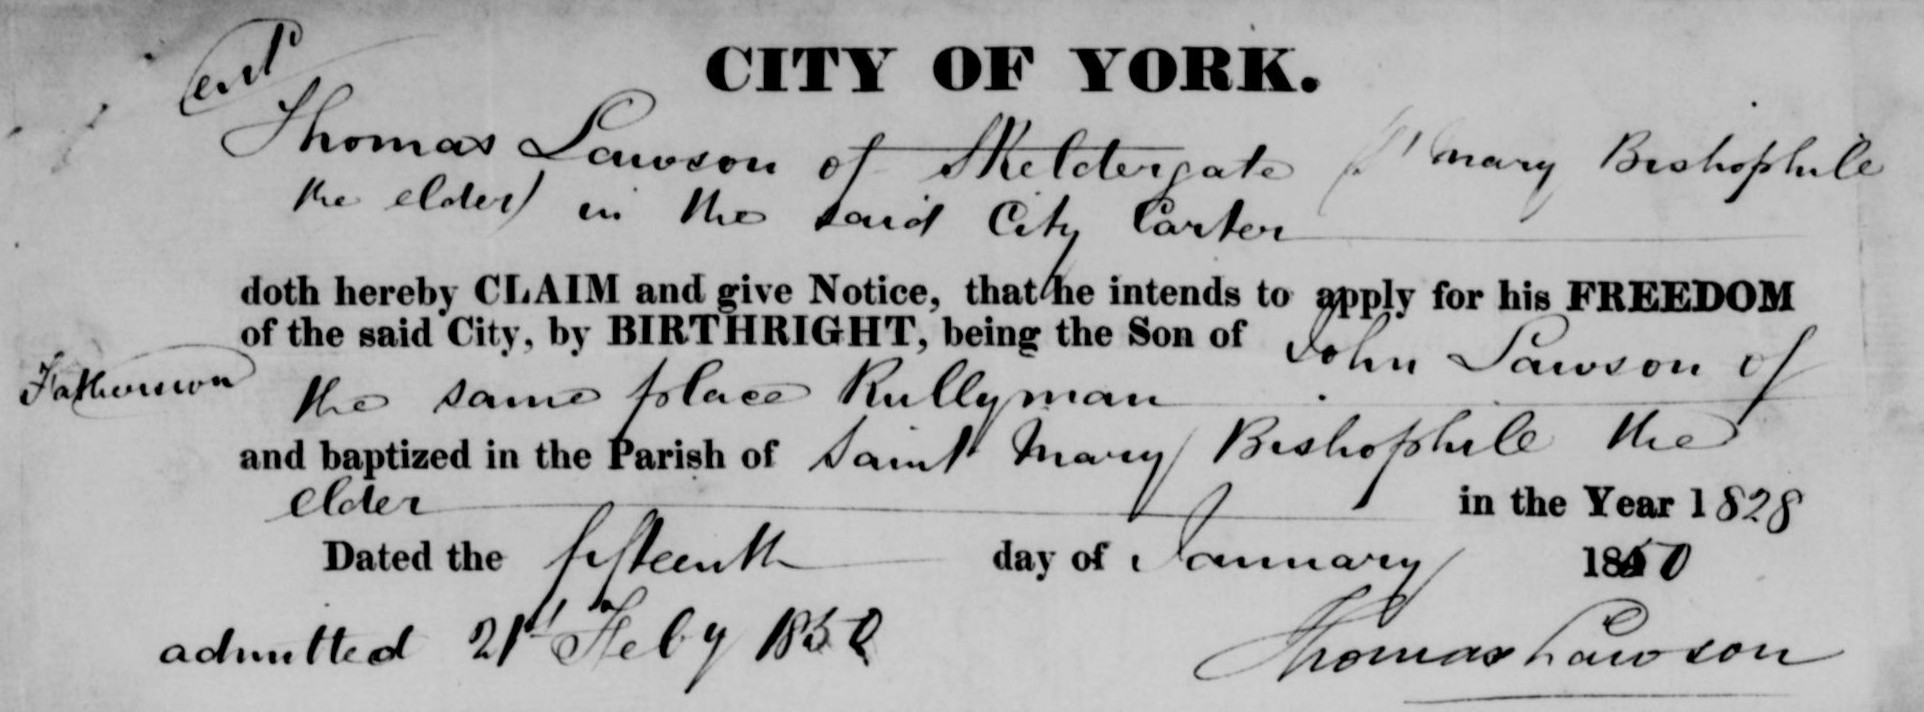 Cert
CITY OF YORK.
Thomas Lawson of Skeldergate (St Mary Bishophile
the elder) in the said City Carter
doth hereby CLAIM and give Notice, that he intends to apply for his FREEDOM
of the said City, by BIRTHRIGHT, being the Son of John Lawson of
the same place Rullyman
and baptized in the Parish of Saint Mary Bishophile the
elder in the Year 1828
Dated the fifteenth day of January 1850
admitted 21st Feby 1850
Thomas Lawson